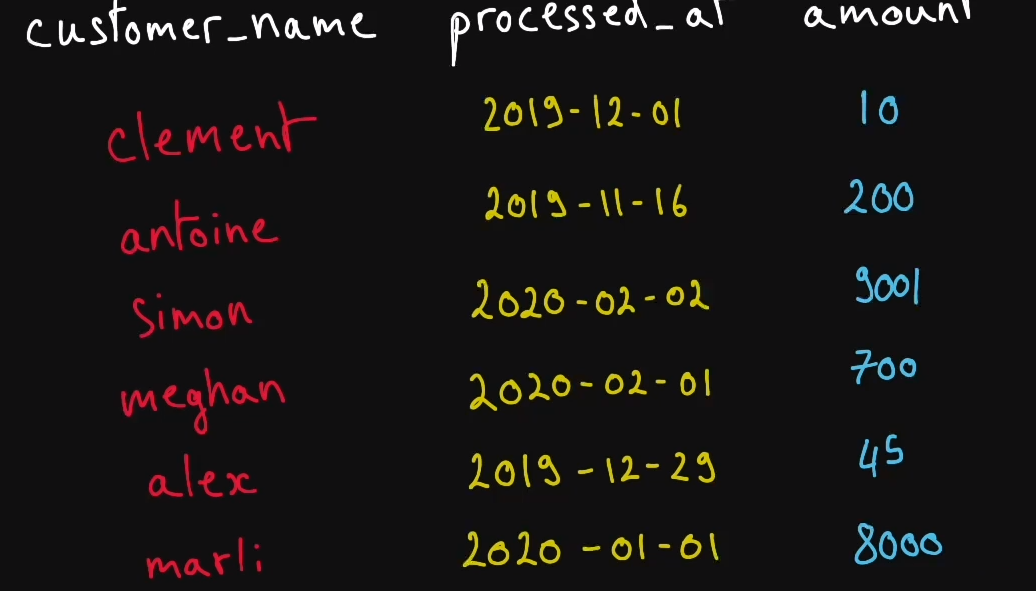 customer_name processed_at amount
clement 2019-12-01 10
antoine 2019-11-16 200
simon 2020-02-02 9001
meghan 2020-02-01 700
alex 2019-12-29 45
marli 2020-01-01 8000